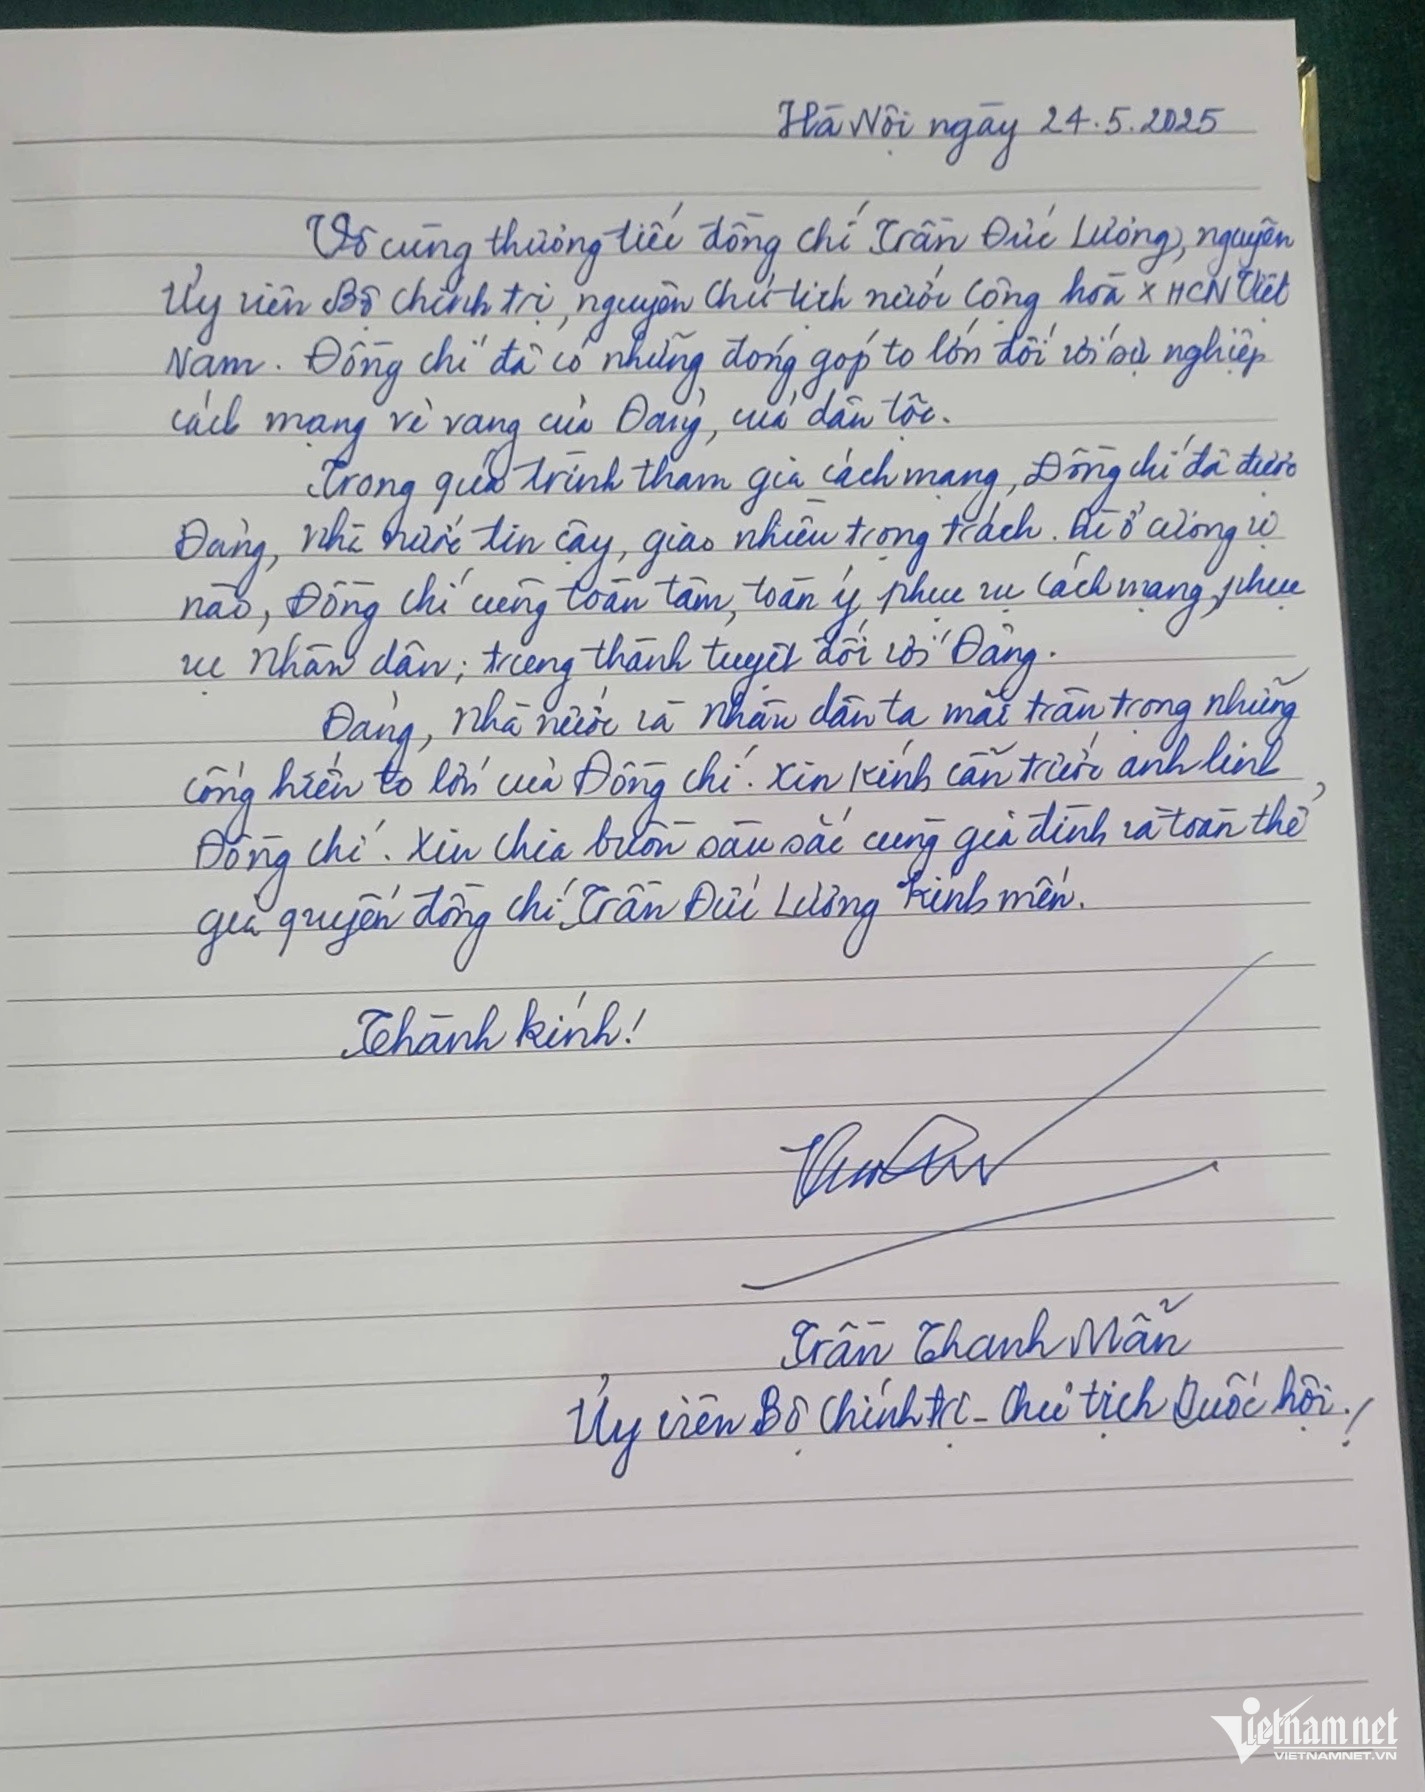 Hà Nội ngày 24.5.2025
Vô cùng thương tiếc đồng chí Trần Đức Lương, nguyên
Ủy viên Bộ chính trị, nguyên Chủ tịch nước Cộng hoà XHCN Việt
Nam. Đồng chí đã có những đóng góp to lớn đối với sự nghiệp
cách mạng vẻ vang của Đảng, của dân tộc.
Trong quá trình tham gia cách mạng, Đồng chí đã được
Đảng, Nhà nước tin cậy, giao nhiều trọng trách. Dù ở cương vị
nào, Đồng chí cũng toàn tâm, toàn ý phục vụ cách mạng, phục
vụ Nhân dân; trung thành tuyệt đối với Đảng.
Đảng, Nhà nước và Nhân dân ta mãi trân trọng những
cống hiến to lớn của Đồng chí. Xin kính cẩn trước anh linh
Đồng chí. Xin chia buồn sâu sắc cùng gia đình và toàn thể
gia quyến đồng chí Trần Đức Lương kính mến.
Thành kính!
Trần Thanh Mẫn
Ủy viên Bộ Chính trị - Chủ tịch Quốc hội.!
Vietnamnet
VIETNAMNET.VN